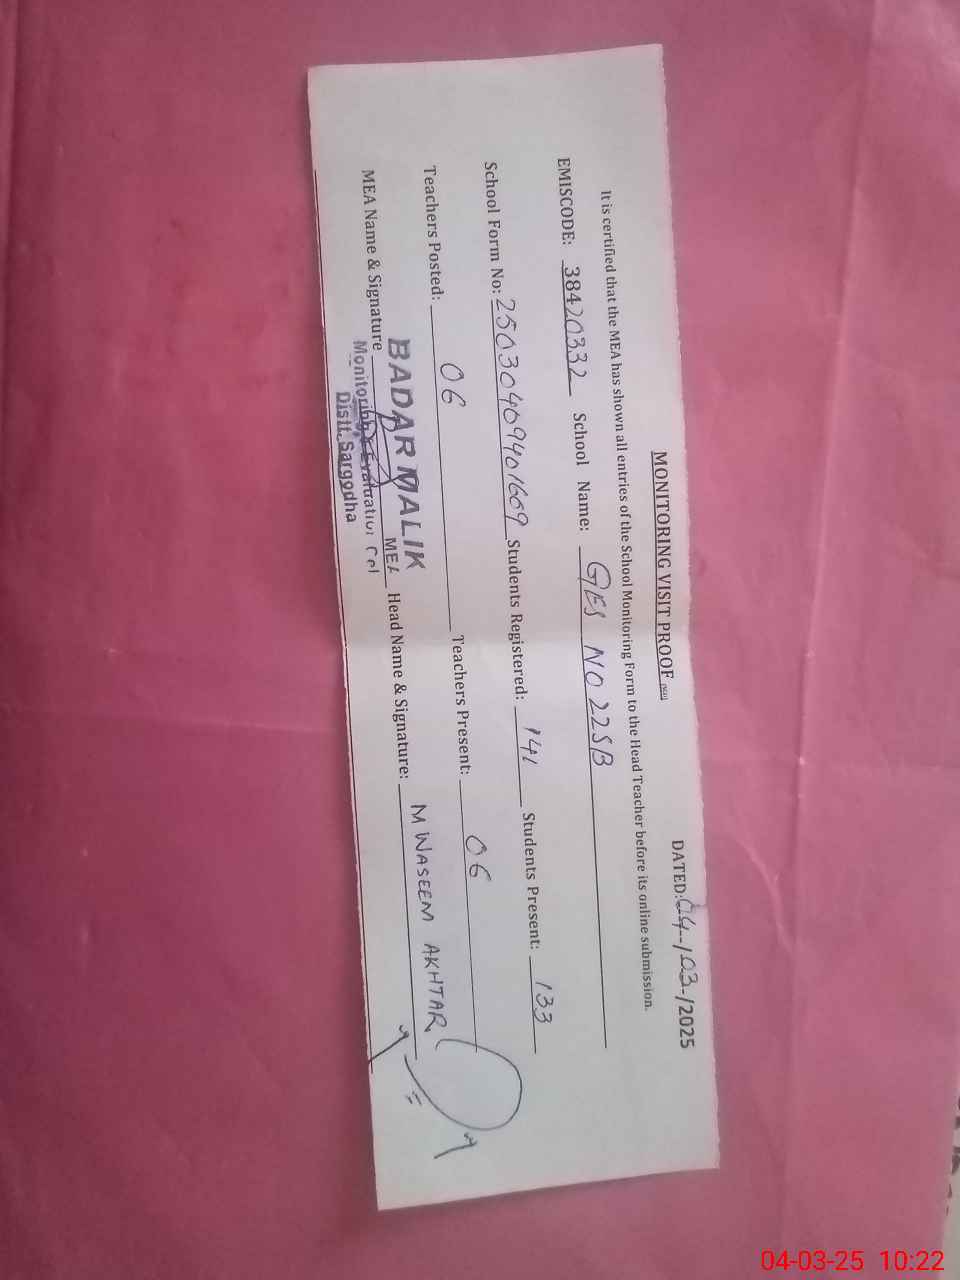 MONITORING VISIT PROOF
DATED: 04-/03-/2025
It is certified that the MEA has shown all entries of the School Monitoring Form to the Head Teacher before its online submission.
EMISCODE: 38420332 School Name: GES NO 22SB
School Form No: 25030409401609 Students Registered: 141 Students Present: 133
Teachers Posted: 06 Teachers Present: 06
MEA Name & Signature BADAR MALIK Head Name & Signature: M WASEEM AKHTAR
MEA
Monitoring & Evaluation Cel
Distt. Sargodha
04-03-25 10:22